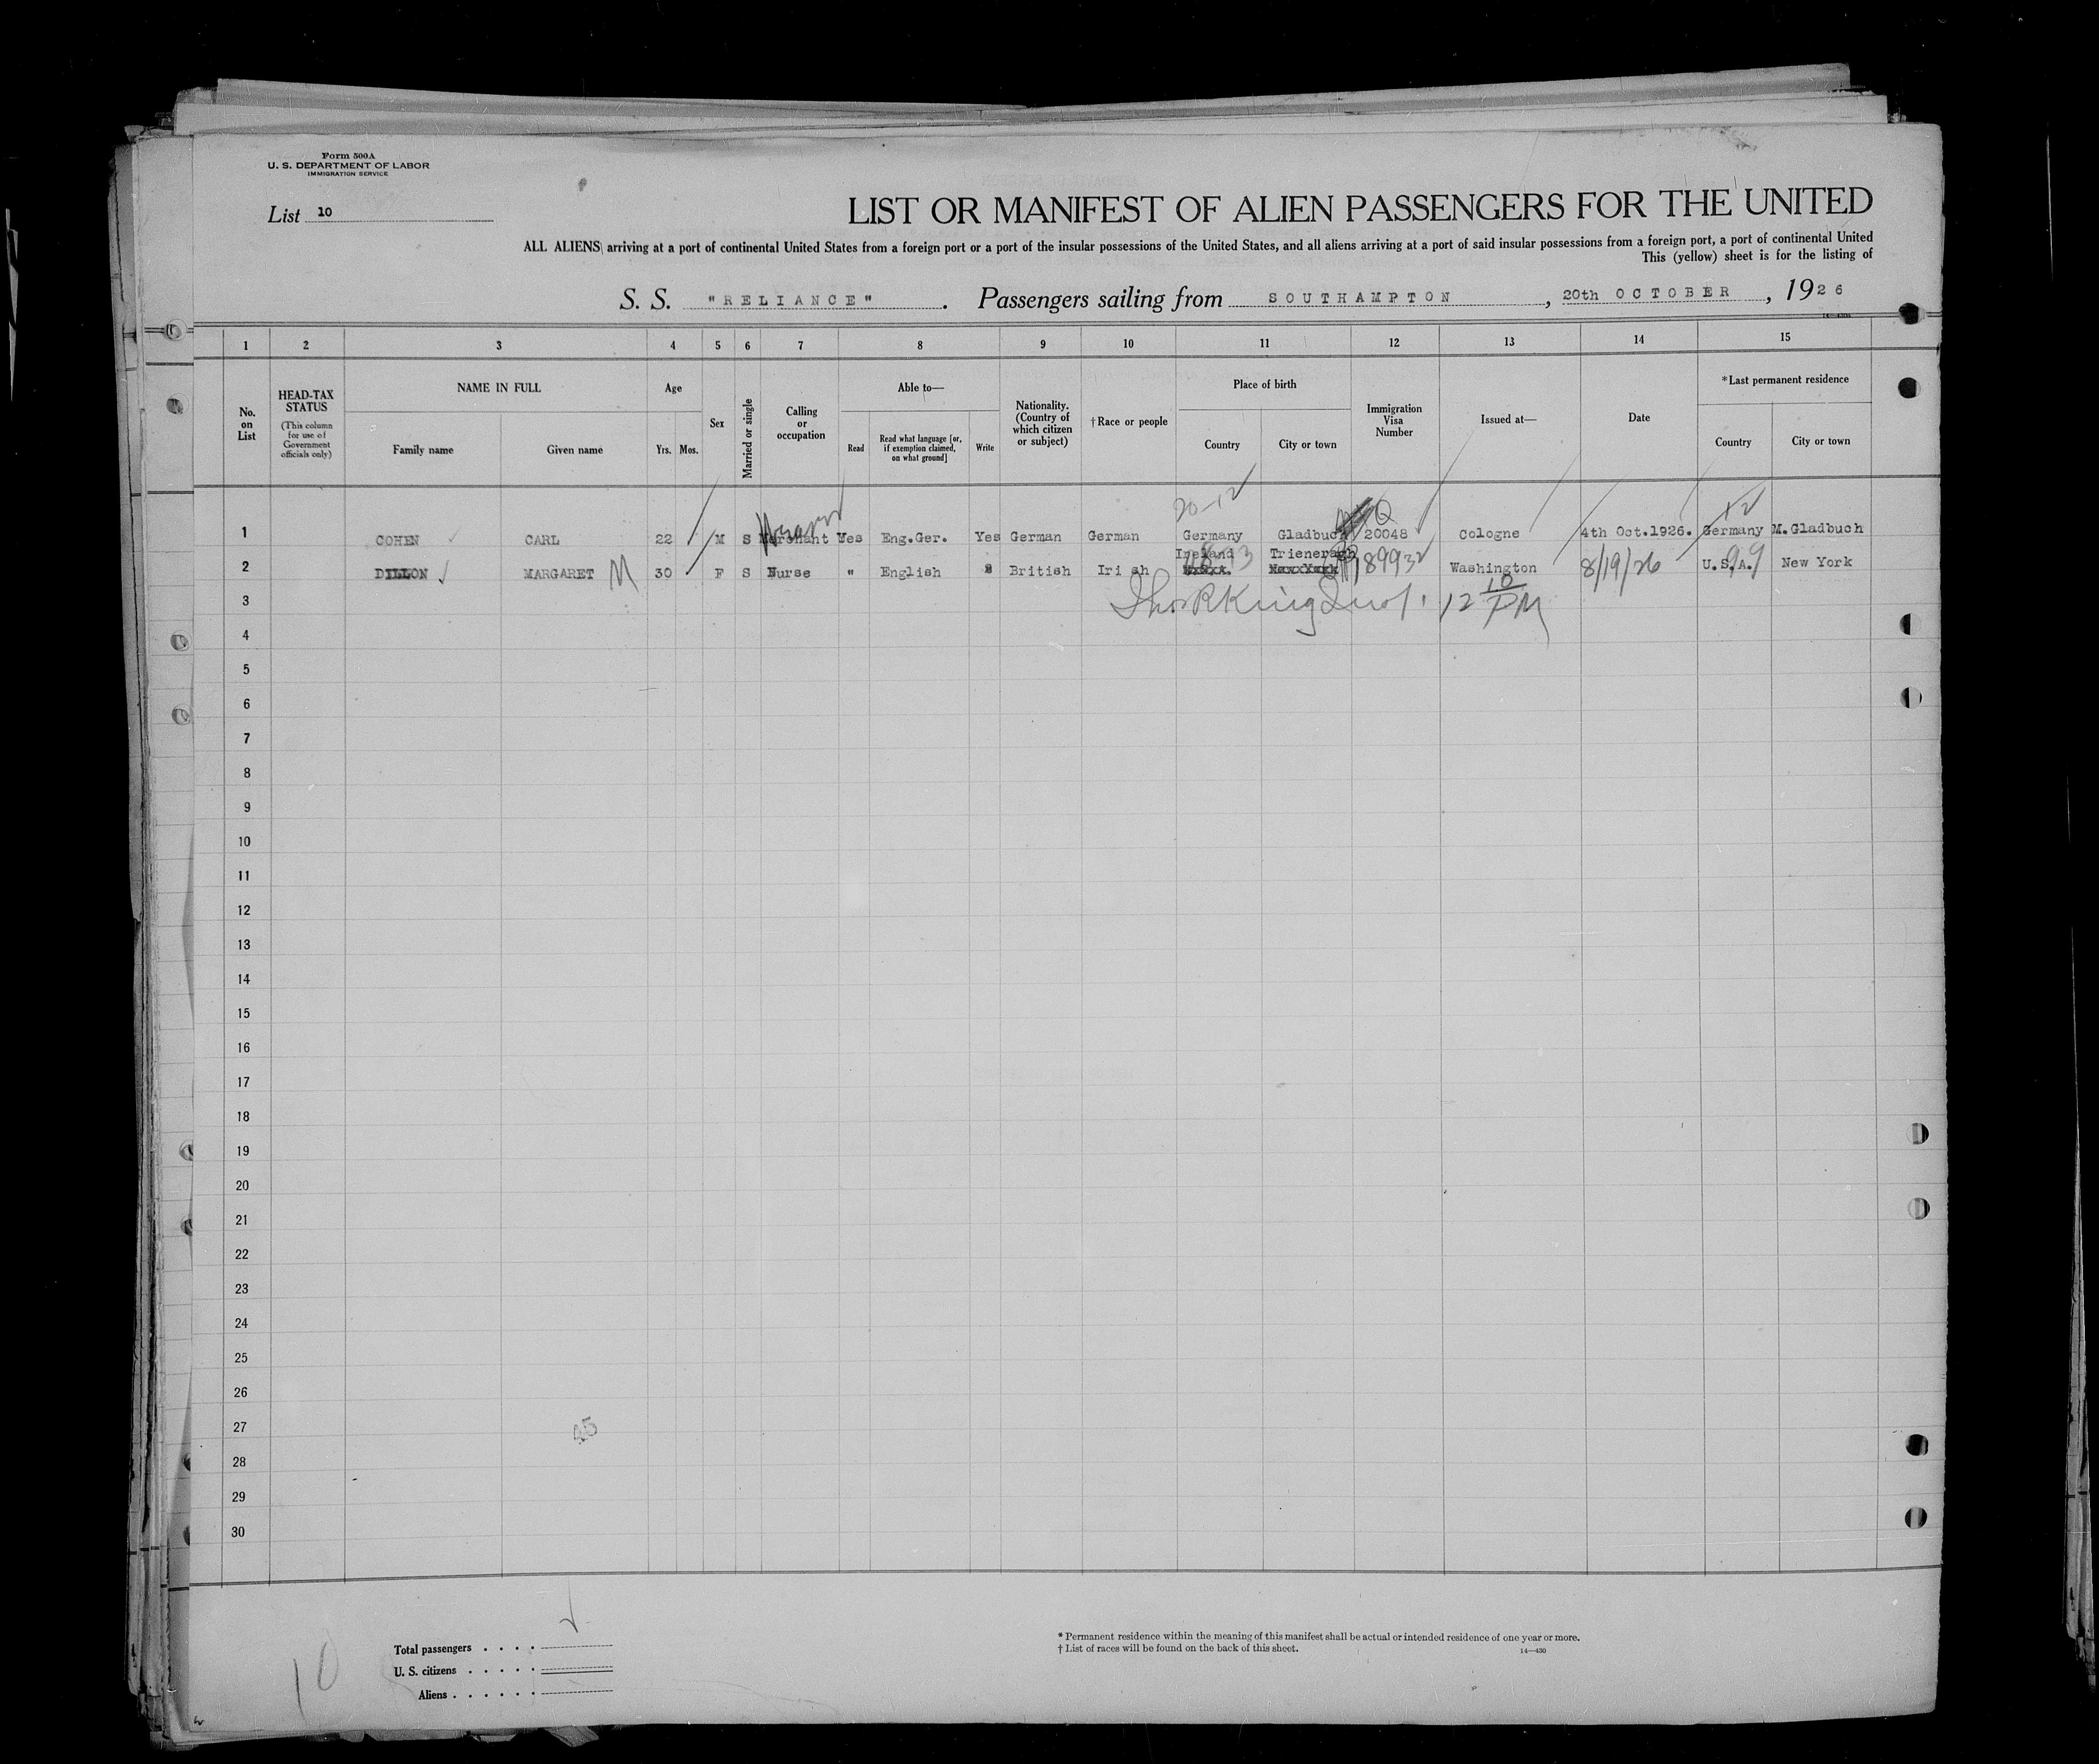 Form 500A
U. S. DEPARTMENT OF LABOR
IMMIGRATION SERVICE
List 10
LIST OR MANIFEST OF ALIEN PASSENGERS FOR THE UNITED
ALL ALIENS arriving at a port of continental United States from a foreign port or a port of the insular possessions of the United States, and all aliens arriving at a port of said insular possessions from a foreign port, a port of continental United
This (yellow) sheet is for the listing of
S. S. "RELIANCE". Passengers sailing from SOUTHAMPTON, 20th OCTOBER, 1926
1 2 3 4 5 6 7 8 9 10 11 12 13 14 15
No. on List
HEAD-TAX STATUS
(This column for use of Government officials only)
NAME IN FULL
Family name Given name
Age
Yrs. Mos.
Sex
Married or single
Calling or occupation
Able to—
Read
Read what language [or, if exemption claimed, on what ground]
Write
Nationality. (Country of which citizen or subject)
†Race or people
Place of birth
Country City or town
Immigration Visa Number
Issued at—
Date
*Last permanent residence
Country City or town
20-12
1 COHEN CARL 22 M S Merchant Yes Eng.Ger. Yes German German Germany Gladbuch 20048 Cologne 4th Oct.1926. Germany M.Gladbuch
Ireland
2 DILLON MARGARET M 30 F S Nurse " English " British Iri sh Washington 8/19/26 U.S.A. New York
3 12 10 PM
4
5
6
7
8
9
10
11
12
13
14
15
16
17
18
19
20
21
22
23
24
25
26
27
28
29
30
Total passengers
U. S. citizens
Aliens
10
* Permanent residence within the meaning of this manifest shall be actual or intended residence of one year or more.
† List of races will be found on the back of this sheet.
14—430